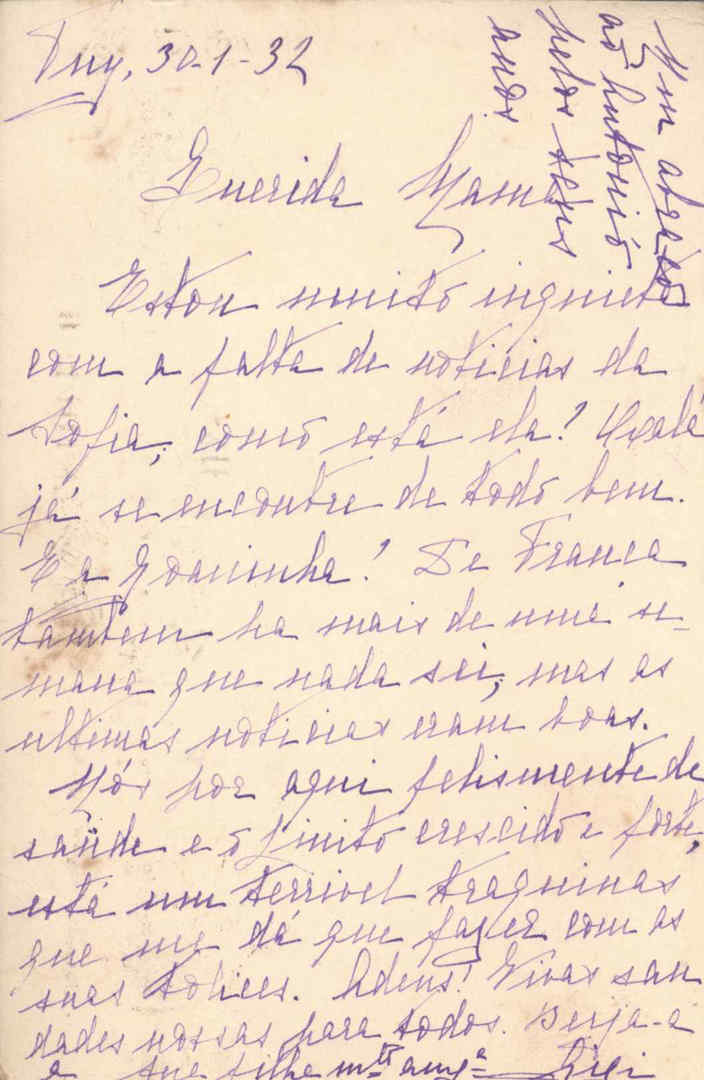 Tuy, 30-1-32
Querida Mamã
Estou muito inquieta
com a falta de noticias da
Sofia, como está ela? Oxalá
já se encontre de todo bem.
E a Joaninha? De França
tambem ha mais de uma se-
mana que nada sei, mas as
ultimas noticias eram boas.
Nós por aqui felismente de
saúde e o Luisito crescido e forte,
está um terrivel traquinas
que me dá que fazer com as
suas tolices. Adeus! Vivas sau
dades nossas para todos. Beija-a
a sua filha mto amga
Um abraço
ao Antonio
pelos seus
anos